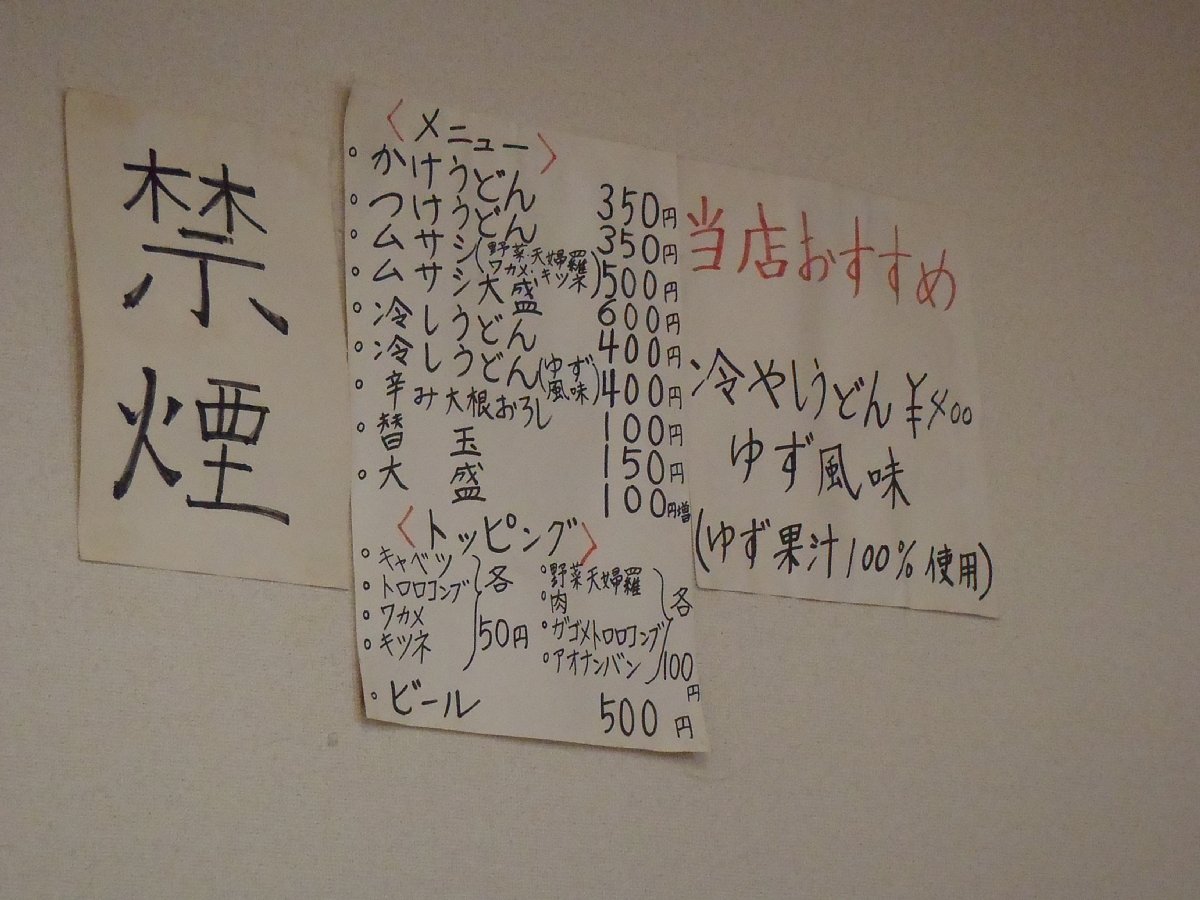 禁煙
〈メニュー〉
○かけうどん 350円
○つけうどん 350円
○ムサシ(野菜天婦羅 ワカメ・キツネ) 500円
ムサシ大盛 600円
○冷しうどん 400円
○冷しうどん(ゆず風味) 400円
○辛み大根おろし 100円
○替玉 150円
○大盛 100円増
〈トッピング〉
○キャベツ
○トロロコンブ
○ワカメ
○キツネ
各50円
○野菜天婦羅
○肉
○ガゴメトロロコンブ
○アオナンバン
各100円
○ビール 500円
当店おすすめ
冷やしうどん ¥400
ゆず風味
(ゆず果汁100%使用)